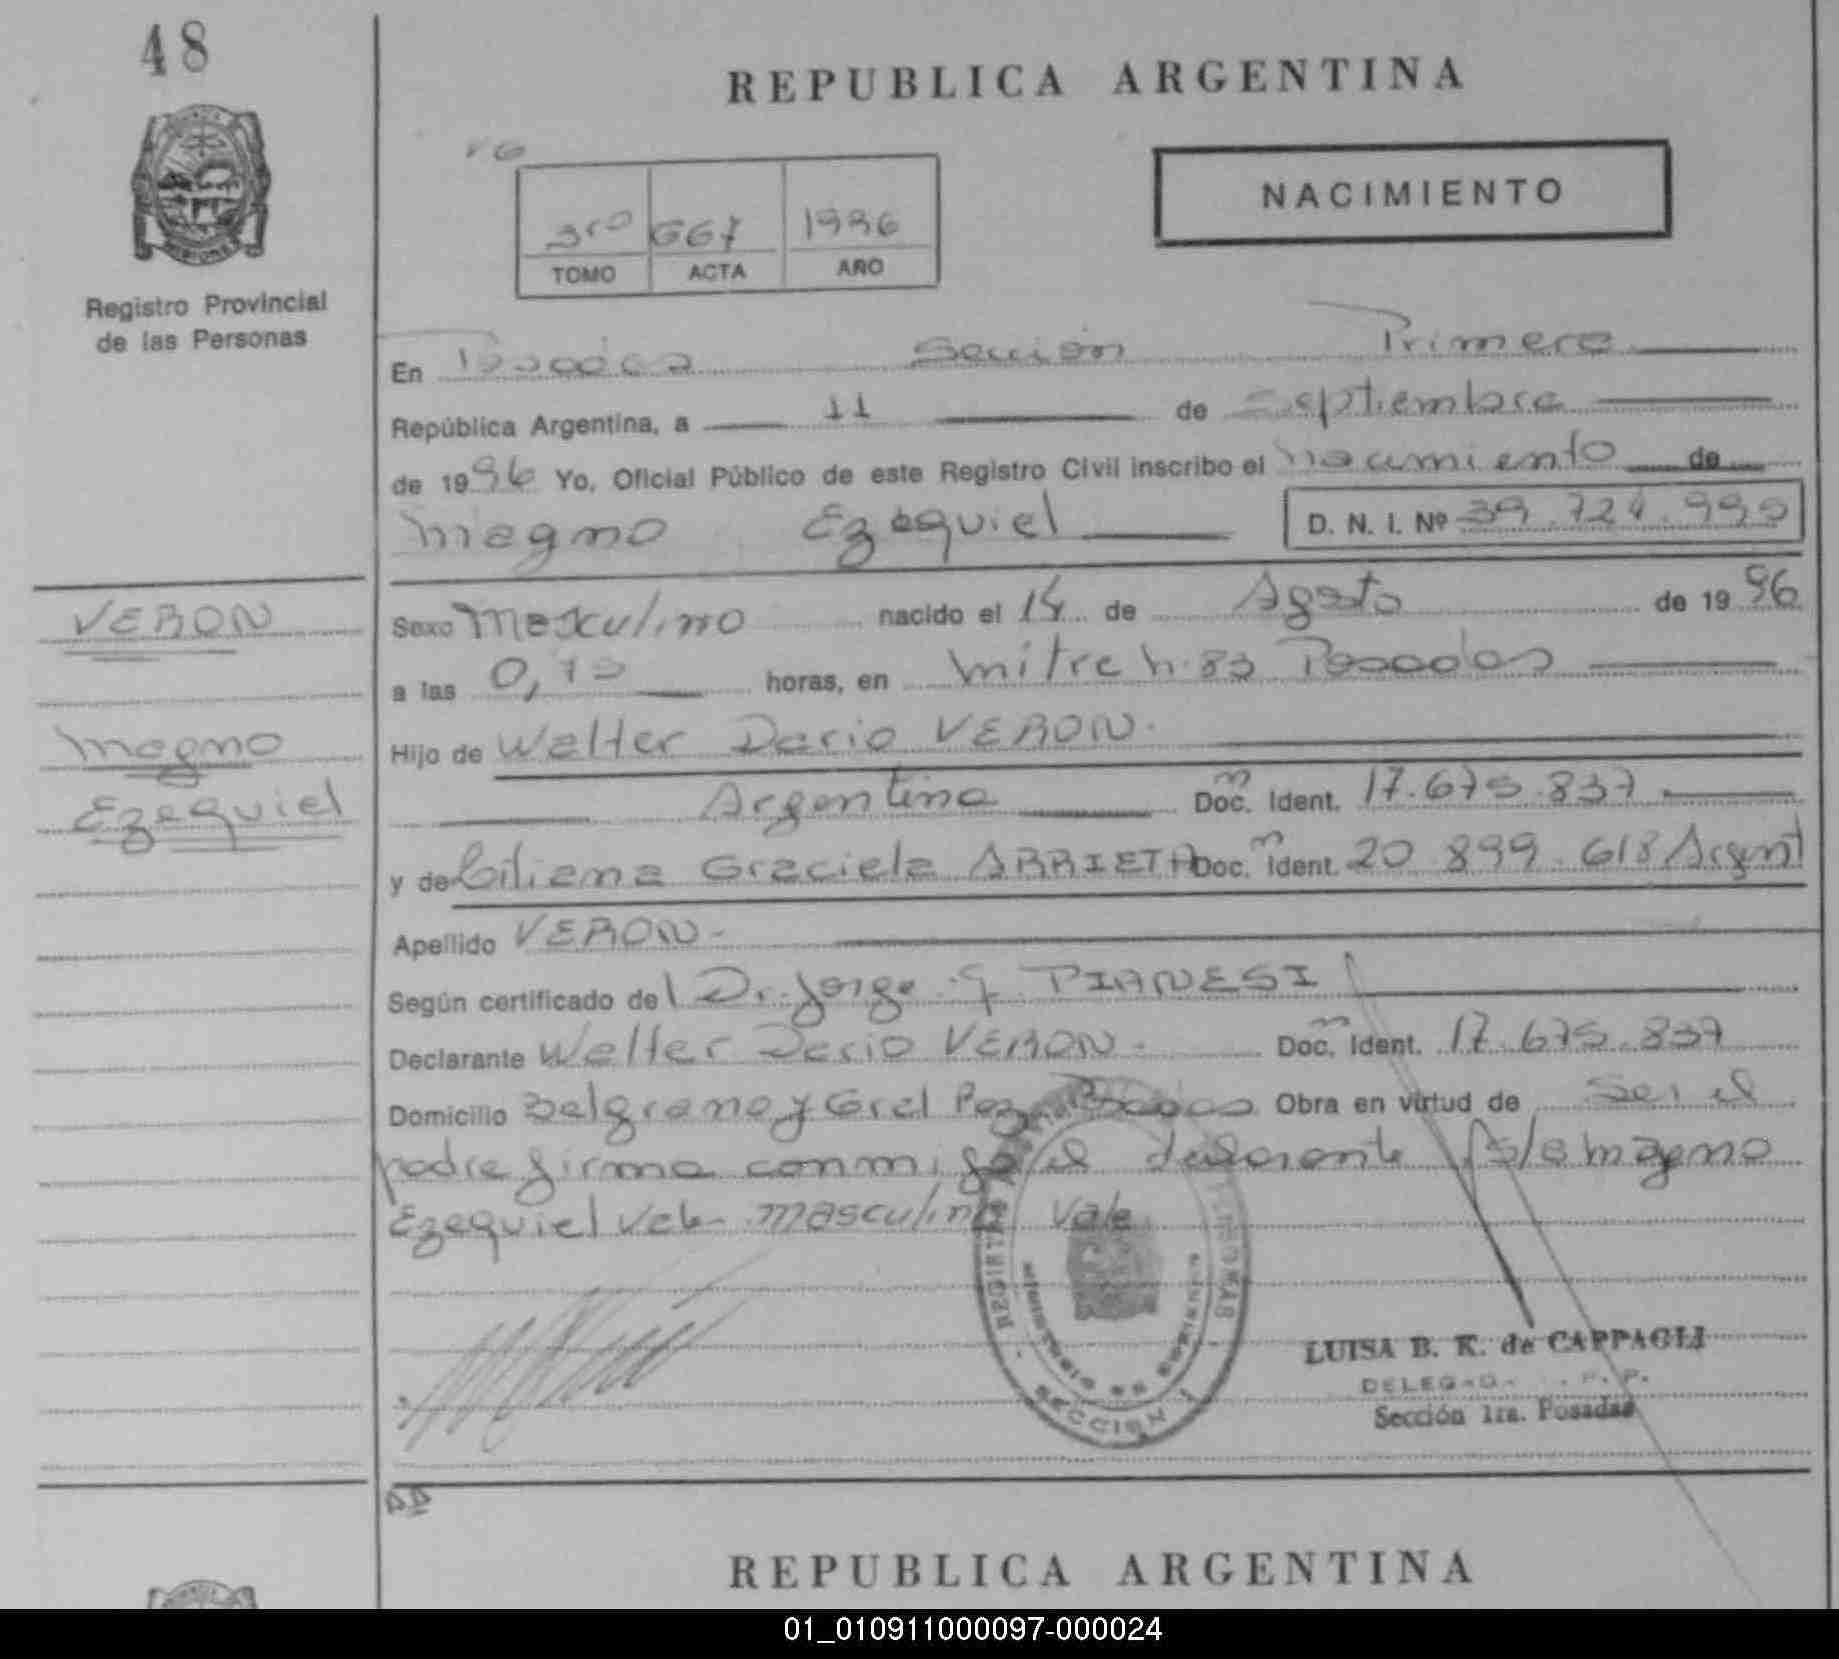 48
REPUBLICA ARGENTINA
NACIMIENTO
3ro 667 1996
TOMO ACTA AÑO
Registro Provincial
de las Personas
En Posadas Sección Primera
República Argentina, a 11 de Septiembre
de 1996 Yo, Oficial Público de este Registro Civil inscribo el nacimiento de
Magno Ezequiel D. N. I. Nº 39.724.990
VERON
Magno
Ezequiel
Sexo Masculino nacido el 14 de Agosto de 1996
a las horas, en Mitre Posadas
Hijo de Walter Dario VERON.
Argentina Doc. Ident. 17.675.837
y de Liliana Graciela ARRIETA Doc. Ident. 20 899.618 Argent
Apellido VERON-
Según certificado del Dr. Jorge PIANESI
Declarante Walter Dario VERON- Doc. Ident. 17.675.837
Domicilio Belgrano y Gral Paz Posadas Obra en virtud de ser el
padre firma conmigo el declarante Magno
Ezequiel Vale- masculino Vale
SECCION 1
LUISA B. K. de CAPPAGLI
Sección 1ra. Posadas
REPUBLICA ARGENTINA
01_010911000097-000024